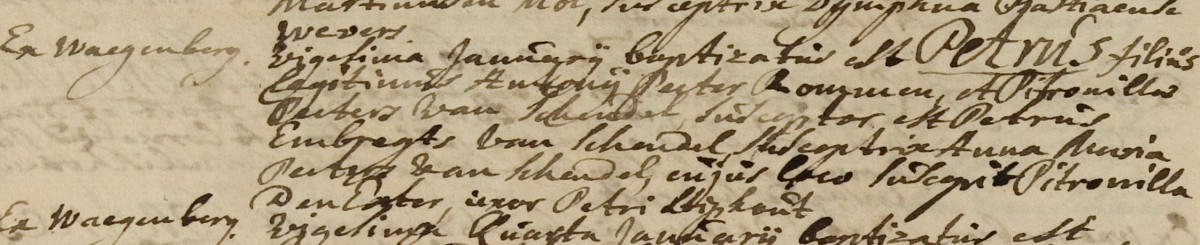 Martinus van Mol, susceptrix Dymphna
wevers.
Ex Waegenberg. Vigesima Januarÿ baptizatus est Petrus filius
legitimus Antonÿ Peeter Rommen, et Pitronilla
Peeters van Schendel, susceptor est Petrus
Embregts van Schendel susceptrix Anna Maria
Peeters van Schendel, cujus loco suscepit Pitronilla
Den uxor Petri
Ex Waegenberg. Vigesima Quarta Januarÿ baptizatus est